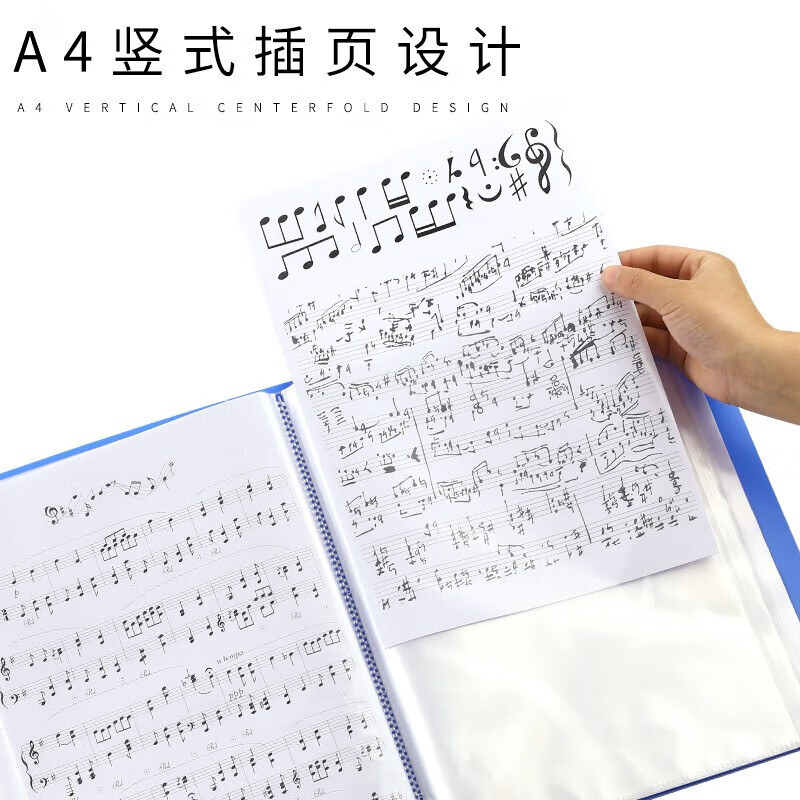 A4竖式插页设计
A4 VERTICAL CENTERFOLD DESIGN
a tempo
ppp